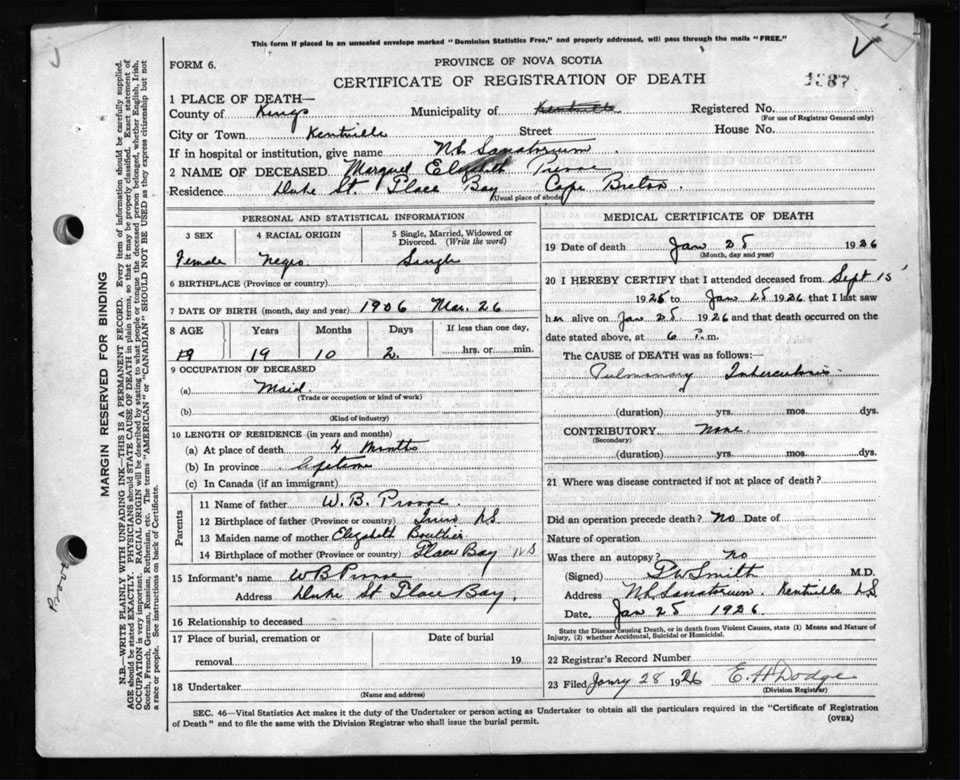 This form if placed in an unsealed envelope marked "Dominion Statistics Free," and properly addressed, will pass through the mails "FREE."
FORM 6.
PROVINCE OF NOVA SCOTIA
CERTIFICATE OF REGISTRATION OF DEATH
1387
1 PLACE OF DEATH—
County of Kings Municipality of Kentville Registered No.
(For use of Registrar General only)
City or Town Kentville Street House No.
If in hospital or institution, give name N.S. Sanatorium.
2 NAME OF DECEASED Margaret Elizabeth
Residence Duke St. Glace Bay Cape Breton.
(Usual place of abode)
PERSONAL AND STATISTICAL INFORMATION
3 SEX 4 RACIAL ORIGIN 5 Single, Married, Widowed or Divorced. (Write the word)
Female Negro Single
6 BIRTHPLACE (Province or country)
7 DATE OF BIRTH (month, day and year) 1906 Mar. 26
8 AGE Years Months Days If less than one day,
19 19 10 2 hrs. or min.
9 OCCUPATION OF DECEASED
(a) Maid.
(Trade or occupation or kind of work)
(b)
(Kind of industry)
10 LENGTH OF RESIDENCE (in years and months)
(a) At place of death 4 Months
(b) In province Lifetime
(c) In Canada (if an immigrant)
Parents
11 Name of father W. B.
12 Birthplace of father (Province or country) Truro N.S.
13 Maiden name of mother Elizabeth
14 Birthplace of mother (Province or country) Glace Bay N S
15 Informant's name W B
Address Duke St Glace Bay.
16 Relationship to deceased
17 Place of burial, cremation or Date of burial
removal 19
18 Undertaker
(Name and address)
MEDICAL CERTIFICATE OF DEATH
19 Date of death Jan 28 1926
(Month, day and year)
20 I HEREBY CERTIFY that I attended deceased from Sept 15
1925 to Jan 28 1926 that I last saw
her alive on Jan 28 1926 and that death occurred on the
date stated above, at 6 P.m.
The CAUSE of DEATH was as follows:
Pulmonary Tuberculosis
(duration) yrs. mos. dys.
CONTRIBUTORY None.
(Secondary)
(duration) yrs. mos. dys.
21 Where was disease contracted if not at place of death?
Did an operation precede death? No Date of
Nature of operation
Was there an autopsy? No
(Signed) Smith M.D.
Address N.S. Sanatorium. Kentville N.S
Date. Jan 28 1926
State the Disease causing Death, or in death from Violent Causes, state (1) Means and Nature of Injury, (2) whether Accidental, Suicidal or Homicidal.
22 Registrar's Record Number
23 Filed Janry 28 1926 E. H Dodge
(Division Registrar)
SEC. 46—Vital Statistics Act makes it the duty of the Undertaker or person acting as Undertaker to obtain all the particulars required in the "Certificate of Registration
of Death" and to file the same with the Division Registrar who shall issue the burial permit.
(OVER)
MARGIN RESERVED FOR BINDING
N.B.—WRITE PLAINLY WITH UNFADING INK—THIS IS A PERMANENT RECORD. Every item of information should be carefully supplied.
AGE should be stated EXACTLY. PHYSICIANS should STATE CAUSE OF DEATH in plain terms, so that it may be properly classified. Exact statement of
OCCUPATION is very important. RACIAL ORIGIN will be described by stating to what people or tongue the deceased person belonged, whether English, Irish,
Scotch, French, German, Russian, Ruthenian, etc. The terms "AMERICAN" or "CANADIAN" SHOULD NOT BE USED as they express citizenship but not
a race or people. See instructions on back of Certificate.